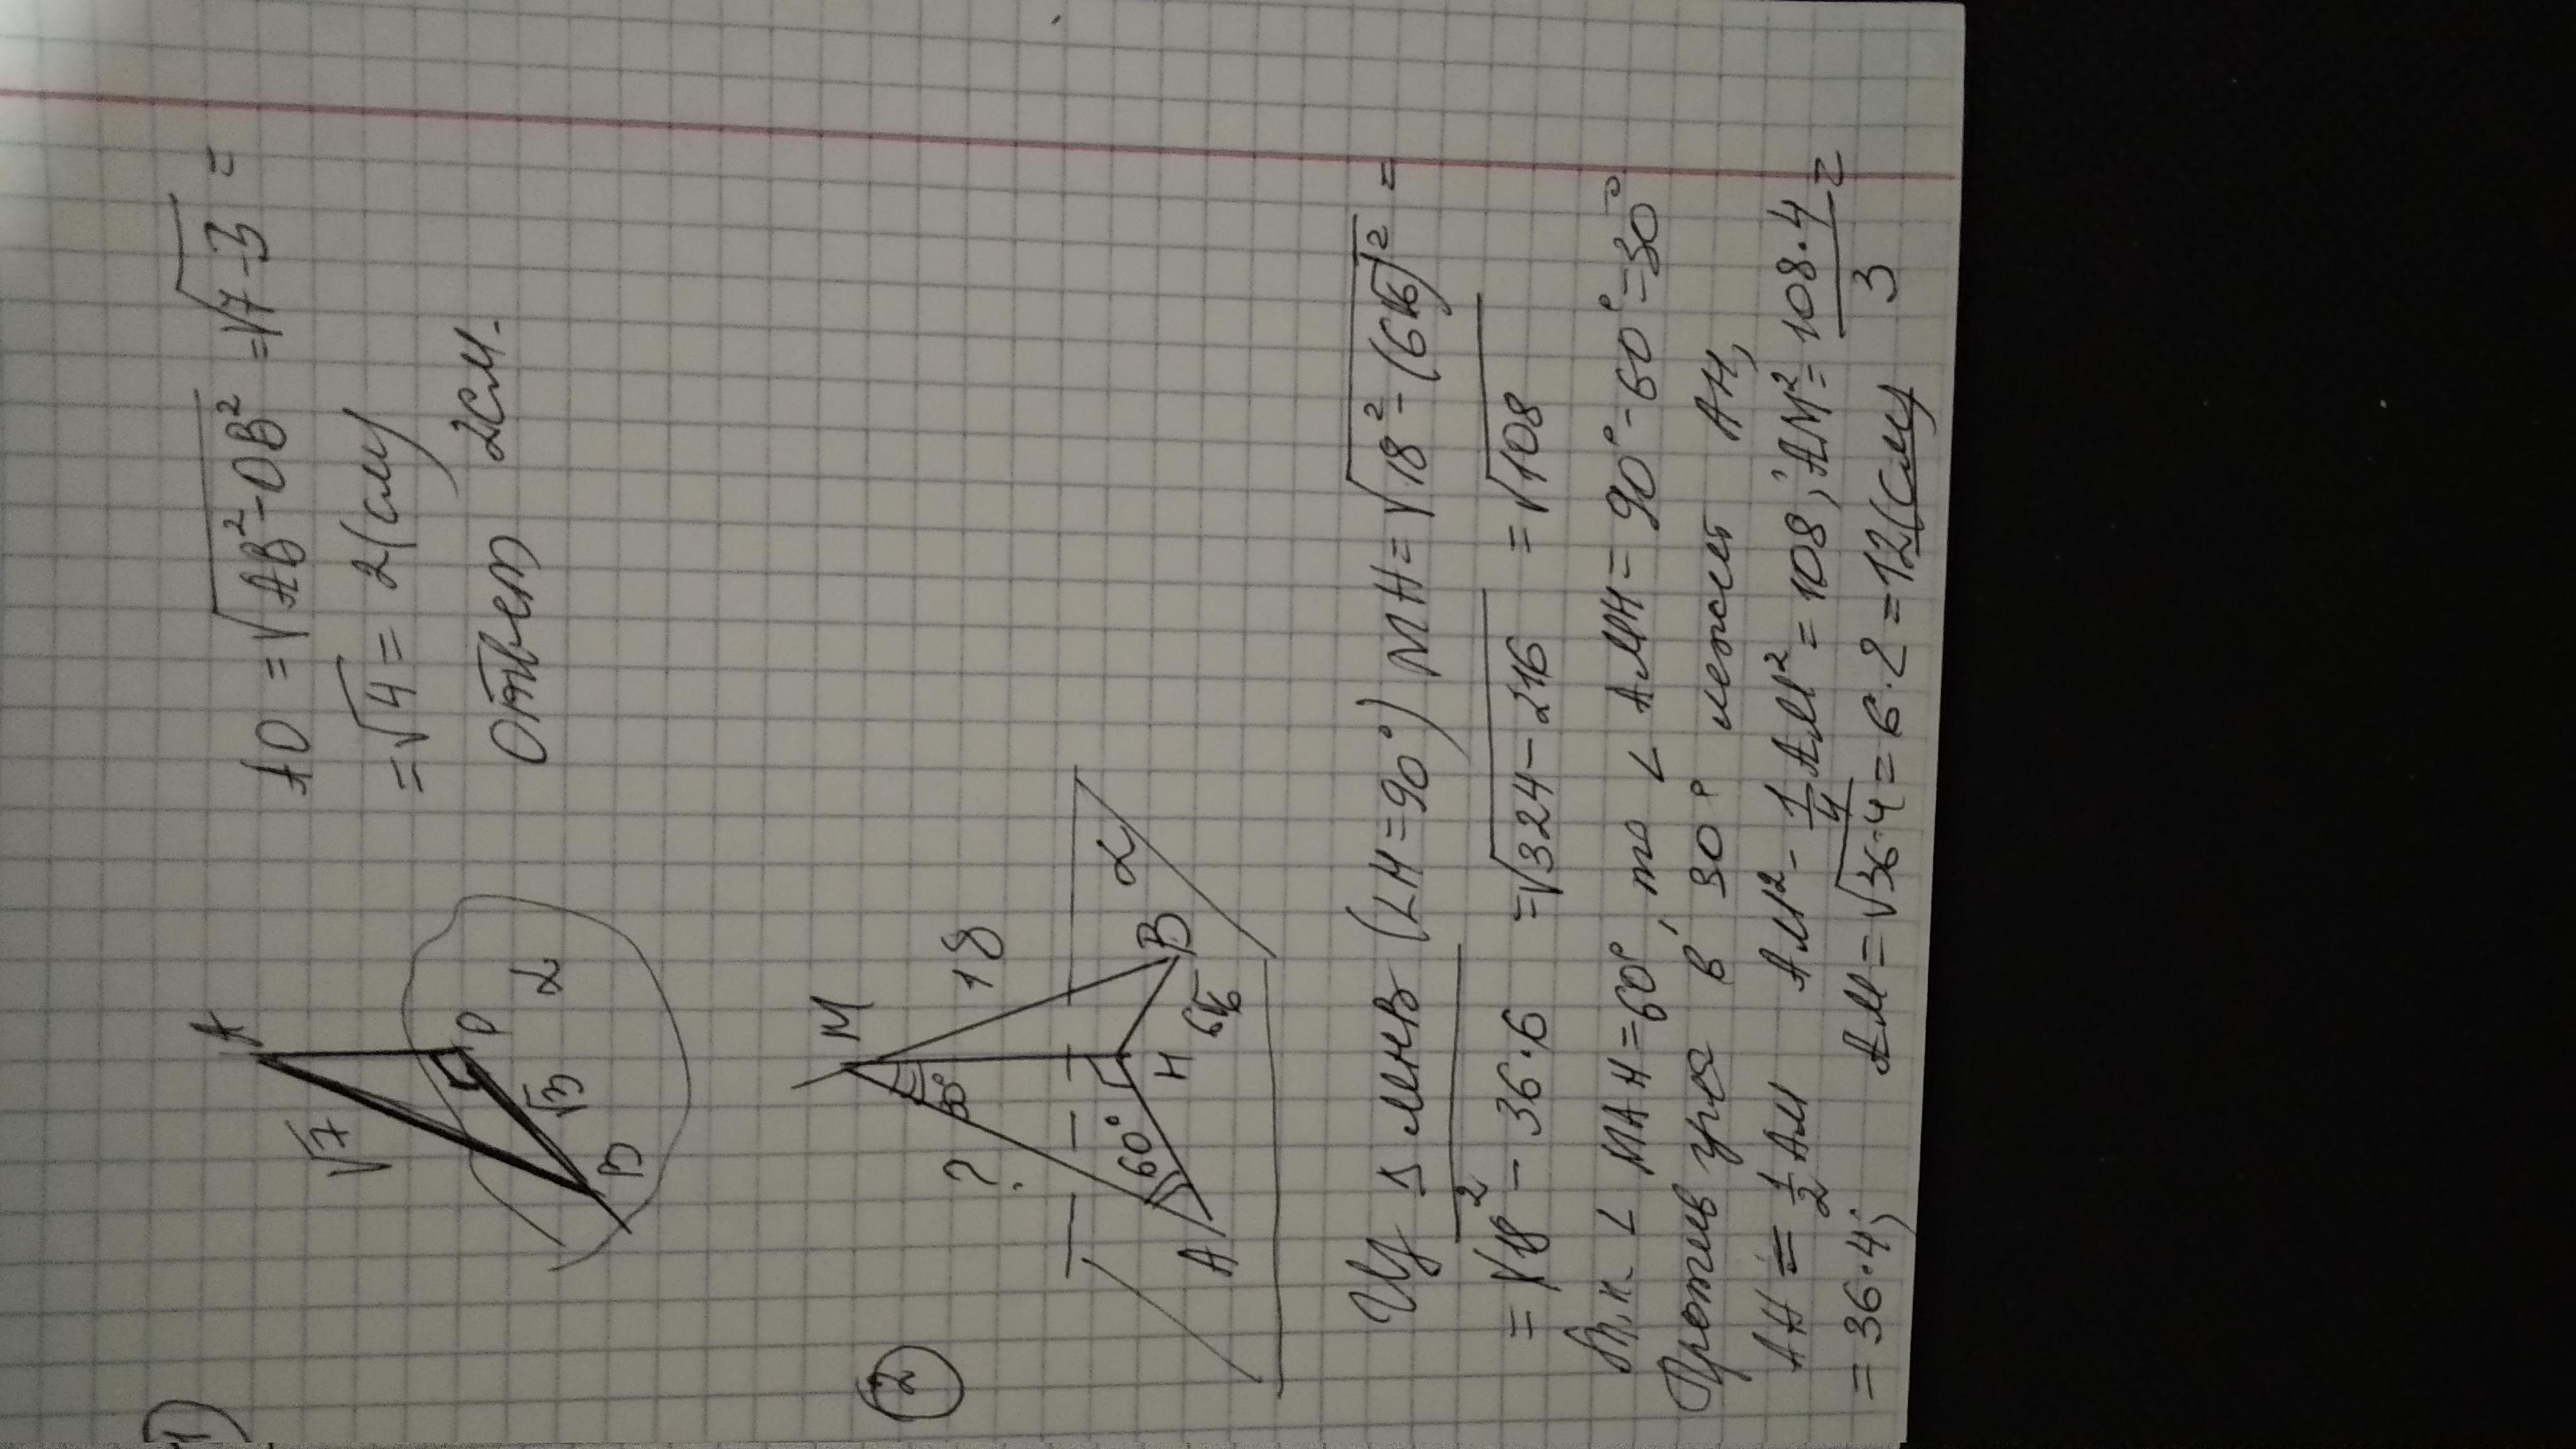 1)
A
√7
O
√3
B
α
AO = √AB² - OB² = √7 - 3 =
= √4 = 2 (см)
Ответ 2см.
2
M
?
30°
18
60°
A
H
6√6
B
α
Из Δ МНВ (∠H = 90°) MH = √18² - (6√6)² =
= √18² - 36·6 = √324 - 216 = √108
Т.к. ∠ MAH = 60°, то ∠ AMH = 90° - 60° = 30°
Против угла в 30° лежит AH,
AH = 1/2 AM AM² - 1/4 AM² = 108; AM² = 108·4/3 =
= 36·4; AM = √36·4 = 6·2 = 12 (см)